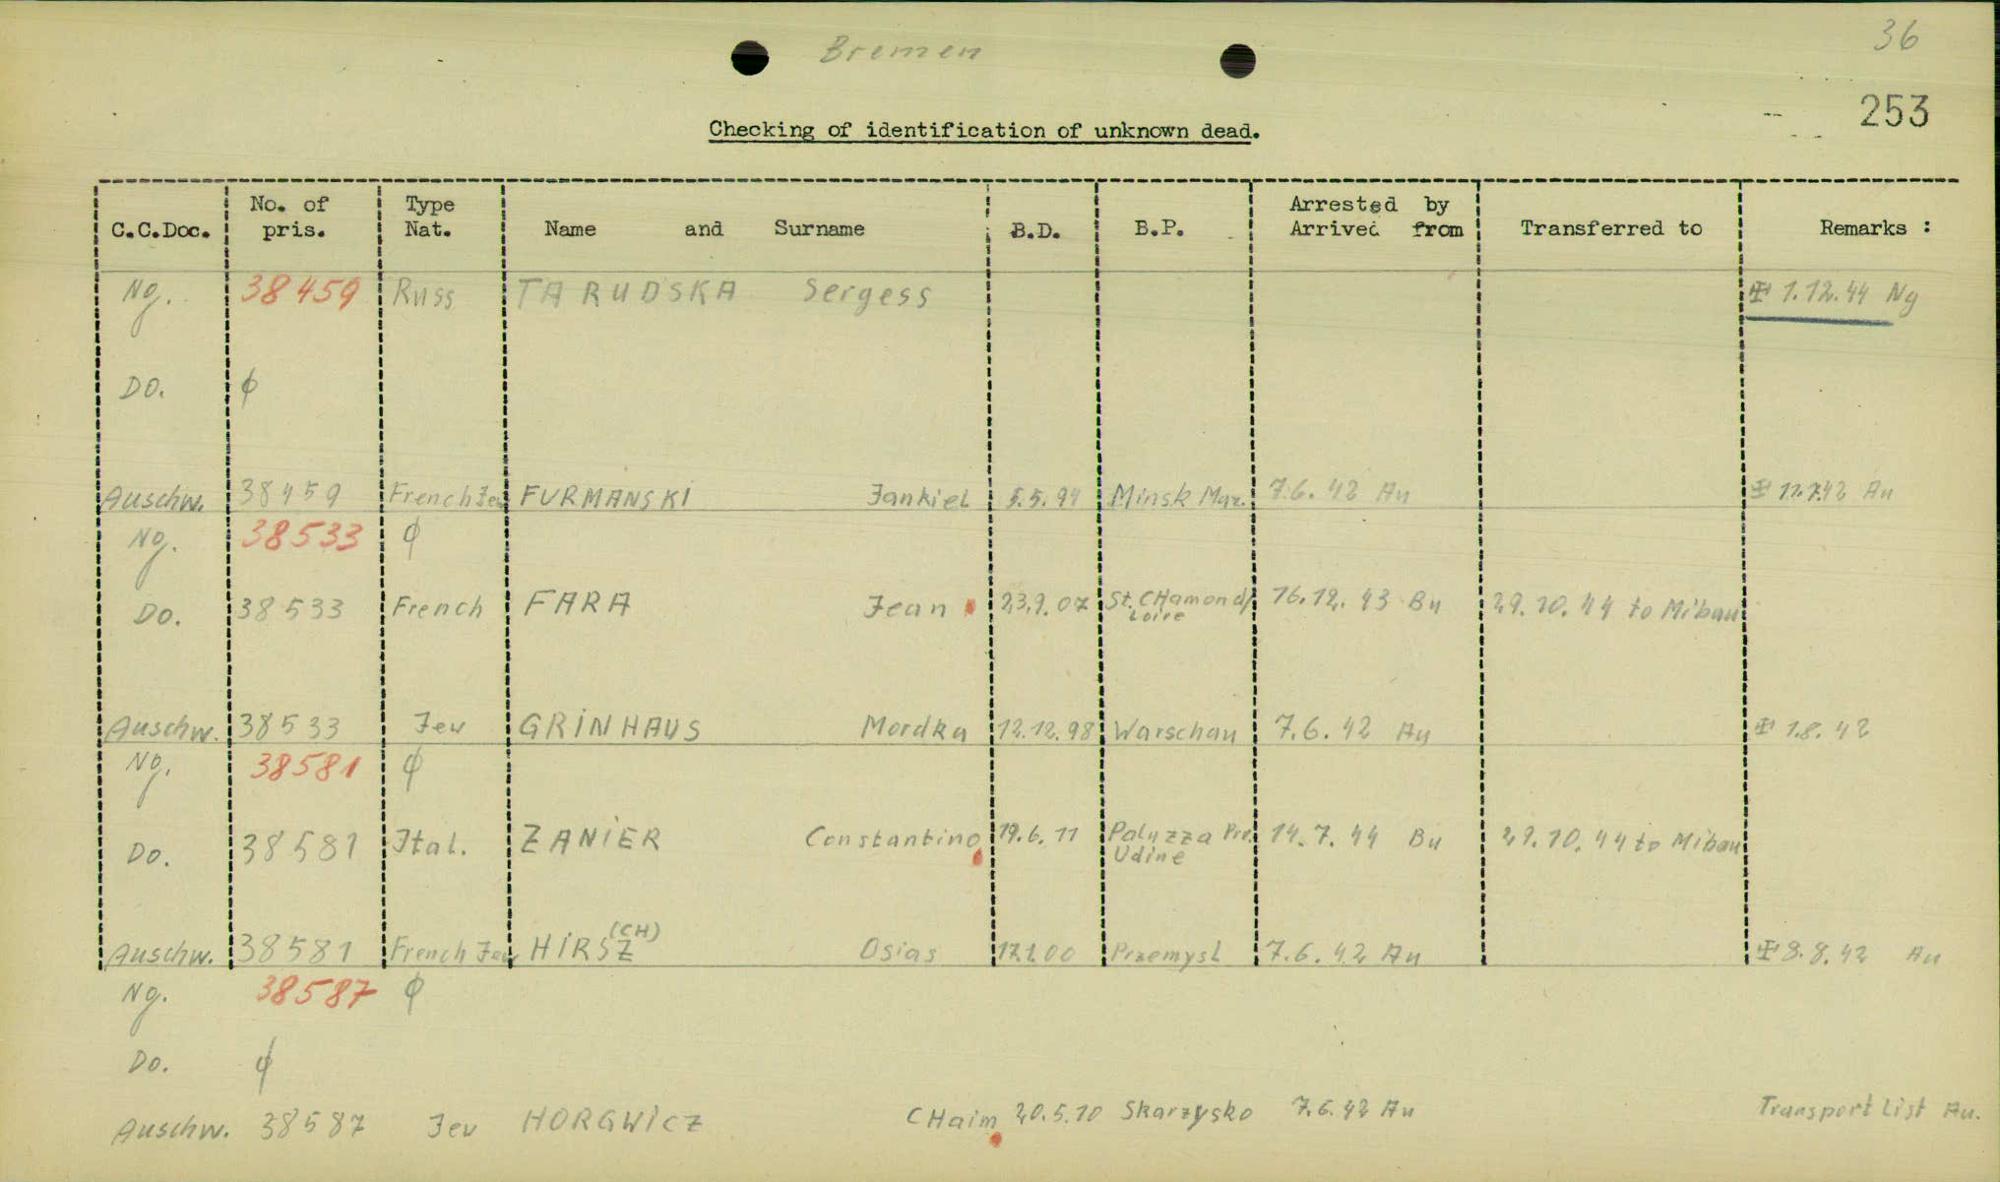 Bremen
36
253
Checking of identification of unknown dead.
C.C.Doc. No. of pris. Type Nat. Name and Surname B.D. B.P. Arrested by Arrived from Transferred to Remarks :
Ng. 38459 Russ TARUDSKA Sergess ✠ 1.12.44 Ng
Do. ϕ
Auschw. 38459 French Jew FURMANSKI Jankiel 5.5.94 Minsk Maz. 7.6.42 Au ✠ 11.7.42 Au
Ng. 38533 ϕ
Do. 38533 French FARA Jean 23.9.07 St. CHamond/ Loire 16.12.43 Bu 29.10.44 to Mibau
Auschw. 38533 Jew GRINHAUS Mordka 12.12.98 Warschau 7.6.42 Au ✠ 1.8.42
Ng. 38581 ϕ
Do. 38581 Ital. ZANIER Constantino 19.6.11 Paluzza Pro. Udine 14.7.44 Bu 29.10.44 to Mibau
Auschw. 38581 French Jew HIRSZ (CH) Osias 17.1.00 Przemysl 7.6.42 Au ✠ 8.8.42 Au
Ng. 38587 ϕ
Do. ϕ
Auschw. 38587 Jew HORGWICZ CHaim 20.5.10 Skarzysko 7.6.42 Au Transport List Au.